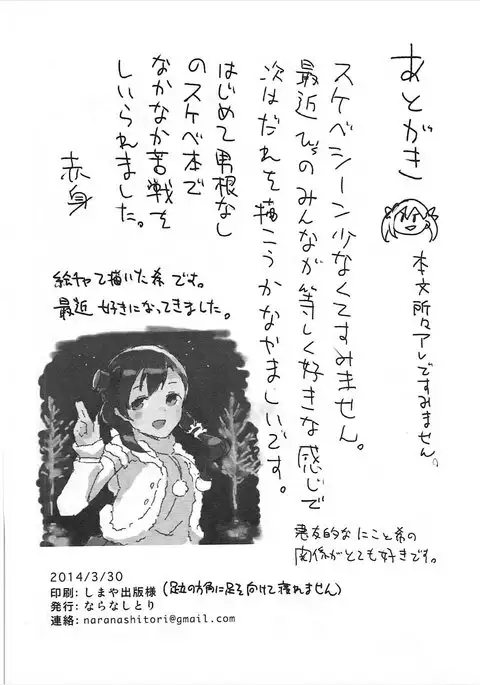 あとがき
本文所々アレですみません。
スケベシーン少なくてすみません。
最近 μ'sのみんなが等しく好きな感じで
次はだれを描こうかなやましいです。
はじめて男根なし
のスケベ本で
なかなか苦戦を
しいられました。
赤身
絵チャで描いた希です。
最近 好きになってきました。
悪友的なにこと希の
関係がとても好きです。
2014/3/30
印刷: しまや出版様 (足の方角に足を向けて寝れません)
発行: ならなしとり
連絡: naranashitori@gmail.com